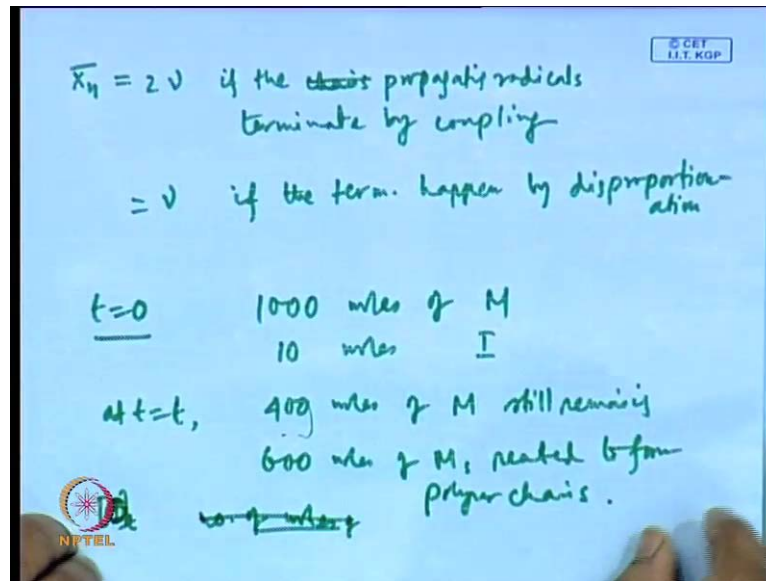 © CET
I.I.T. KGP
X̄n = 2 ν if the propagatig radicals
terminate by coupling
= ν if the term. happen by disproportion-
ation
t=0 1000 moles of M
10 moles I
at t=t, 400 moles of M still remais
600 moles of M, reacted to form
polymer chais.
NPTEL